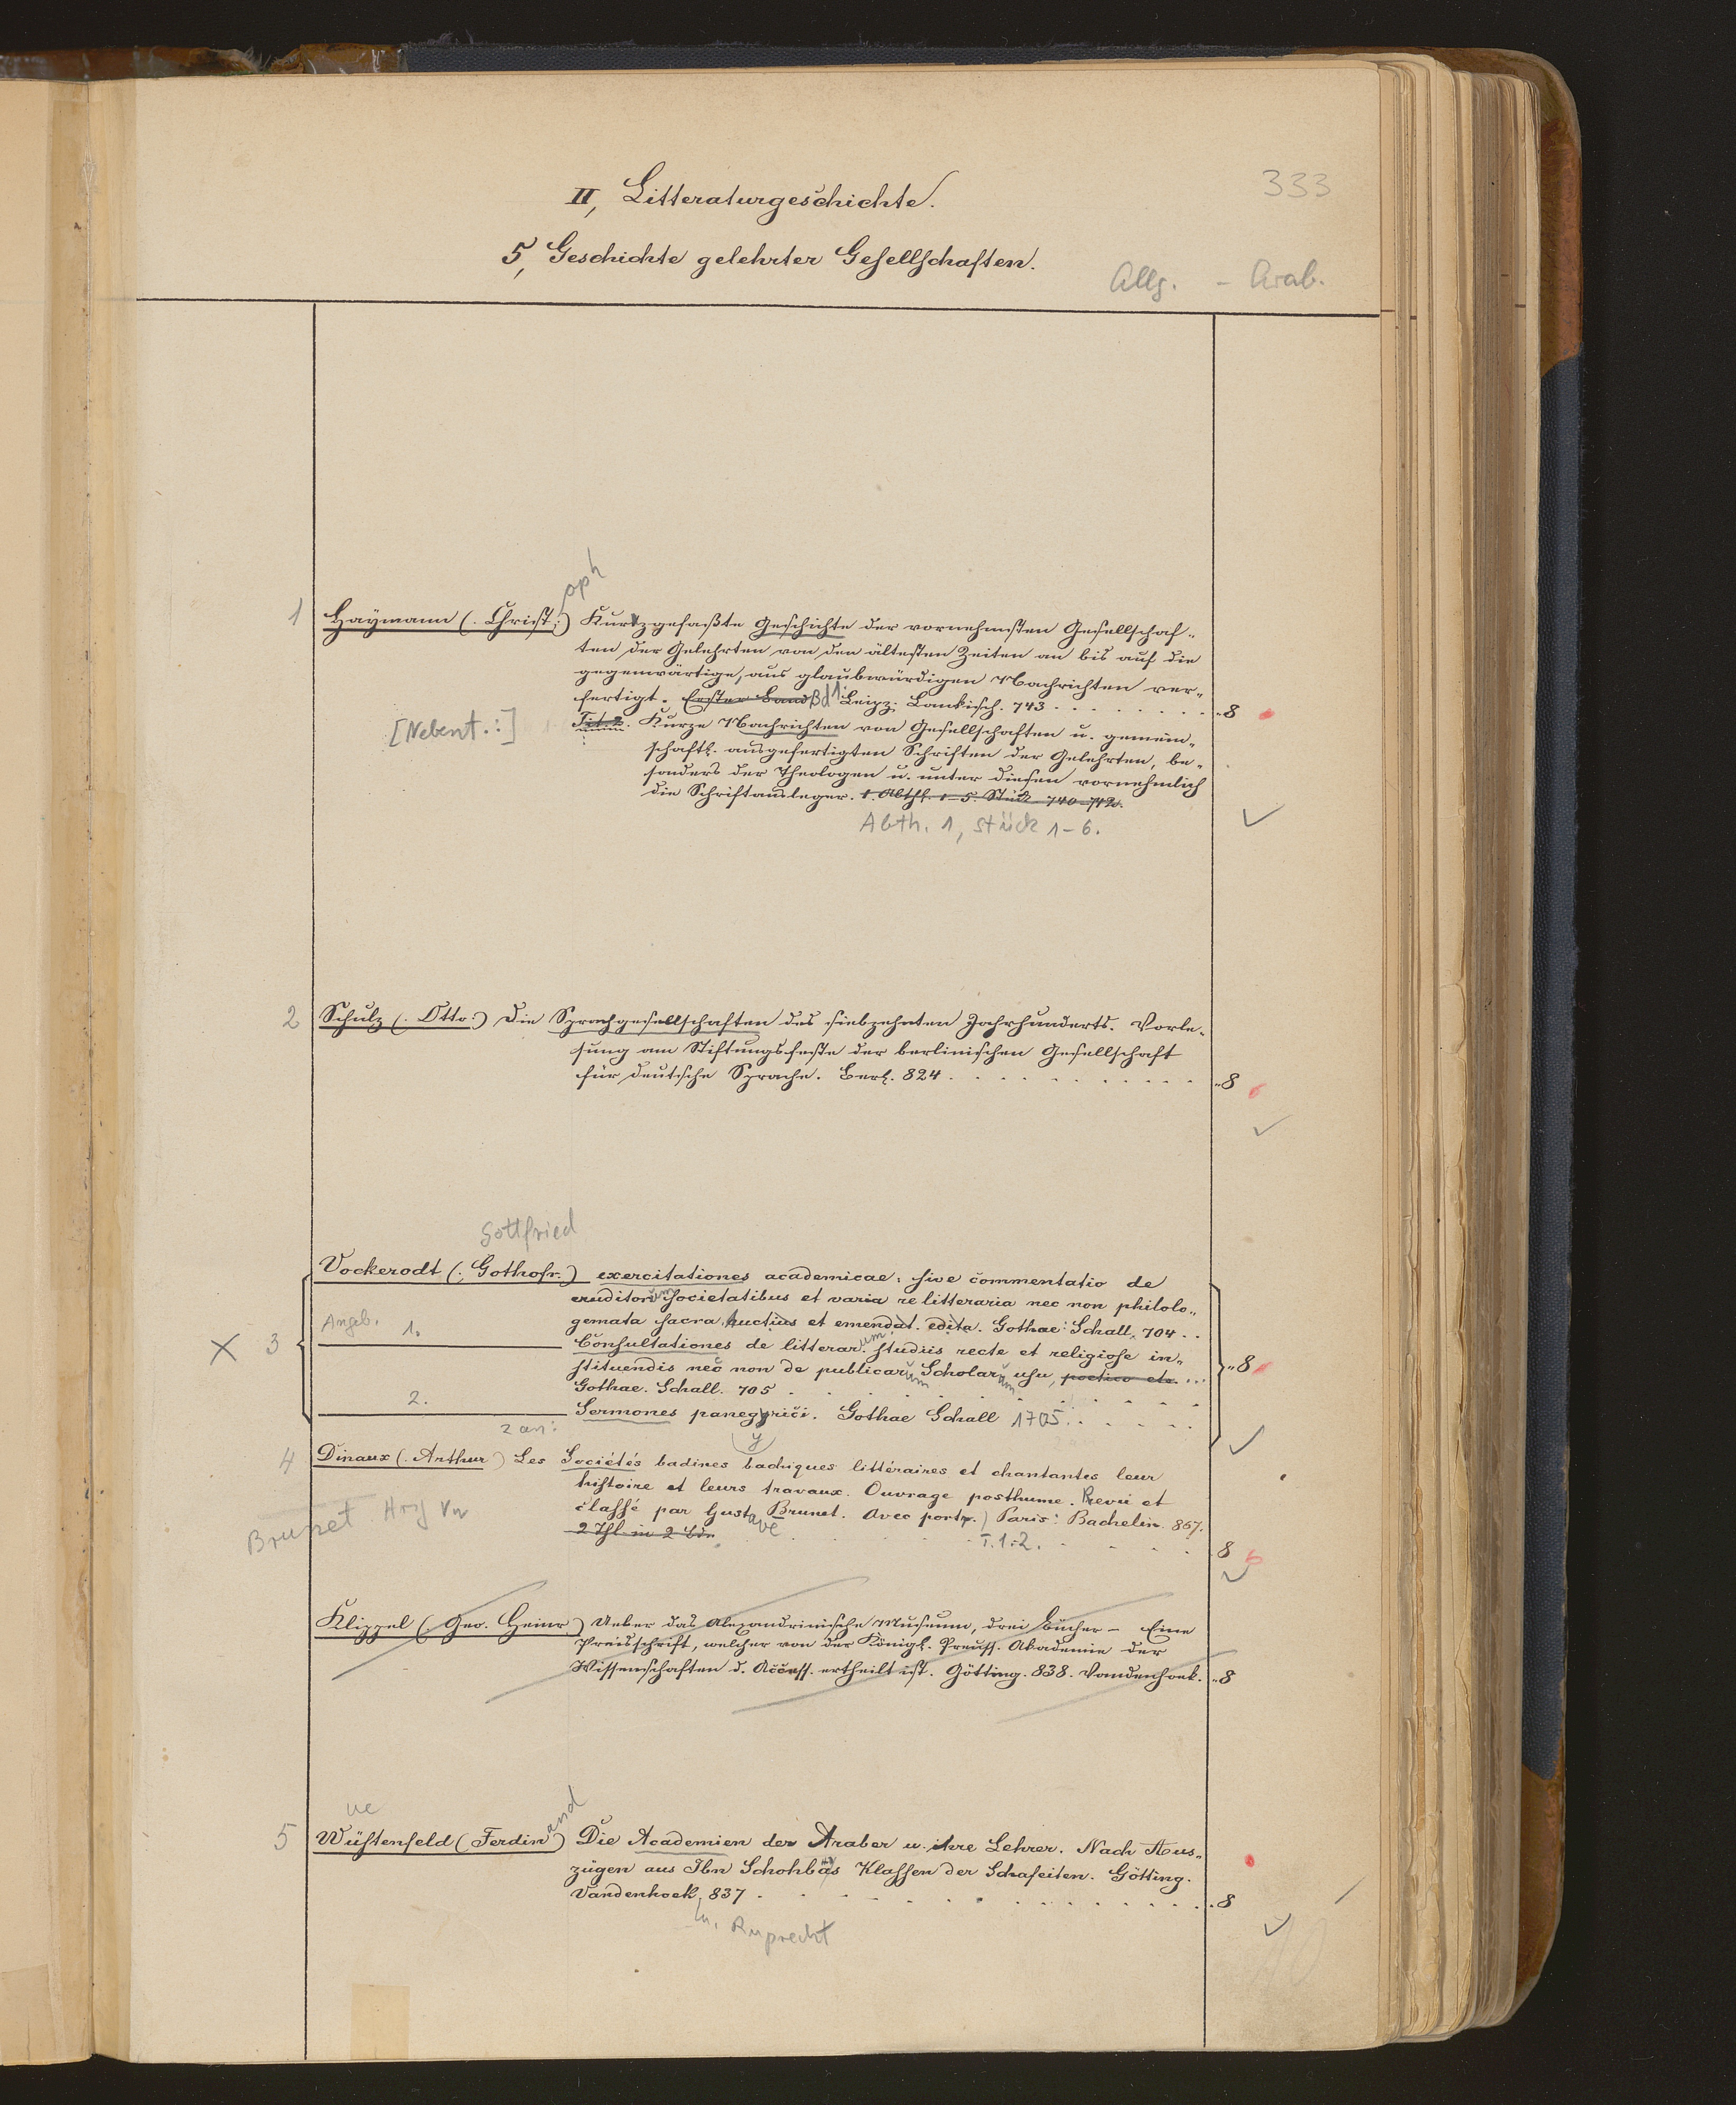 333
II, Litteraturgeschichte.
5, Geschichte gelehrter Gesellschaften.
Allg. - Arab.
oph
1 Haymann (: Christ:) Kurzgefaßte Geschichte der vornehmsten Gesellschaf-
ten der Gelehrten von den ältesten Zeiten an bis auf die
gegenwärtige, aus glaubwürdigen Nachrichten ver-
fertigt. Erster Band Bd 1 Leipz. Lankisch. 743 . . . . . . . . 8
[Nebent.:] Tit. 2. Kurze Nachrichten von Gesellschaften u. gemein-
schaftl. ausgefertigten Schriften der Gelehrten, be-
sonders der Theologen u. unter diesen vornehmlich
die Schriftausleger. 1. Abthl. 1-5. Stück 740-742.
Abth. 1, Stück 1-6.
2 Schulz (: Otto:) Die Sprachgesellschaften des siebzehnten Jahrhunderts. Vorle-
sung am Stiftungsfeste der berlinischen Gesellschaft
für deutsche Sprache. Berl. 824 . . . . . . . . . . 8
Gottfried
Vockerodt (: Gothofr.) exercitationes academicae: sive commentatio de
eruditorum societatibus et varia re litteraria nec non philolo-
gemata sacra. Auctius et emendat. edita. Gothae: Schall. 704 . .
X 3 Angeb. 1. Consultationes de litterarum studiis recte et religiose in-
stituendis nec non de publicarum Scholarum usu, poetico etc. . . . 8
Gothae. Schall. 705 . . . . . . . .
2. Sermones panegyrici. Gothae Schall 1705. . . . . .
2 an: y
4 Dinaux (: Arthur) Les Sociétés badines bachiques littéraires et chantantes leur
histoire et leurs travaux. Ouvrage posthume. Revu et
classé par Gustave Brunet. Avec portr. Paris: Bachelin. 867.
Brunet Hrsg
2 Thl. in 2 Bdn. T. 1.2. . . . . 8
Klippel (: Geo. Heinr) Ueber das Alexandrinische Museum, drei Bücher - Eine
Preisschrift, welcher von der Königl. Preuss. Akademie der
Wissenschaften d. Access. ertheilt ist. Götting. 838. Vandenhoek. 8
ue and
5 Wüstenfeld (Ferdin) Die Academien der Araber u. ihre Lehrer. Nach Aus-
zügen aus Ibn Schohbas Klassen der Schafeiten. Götting.
Vandenhoek 837 . . . . . . . . . . . 8
u. Ruprecht